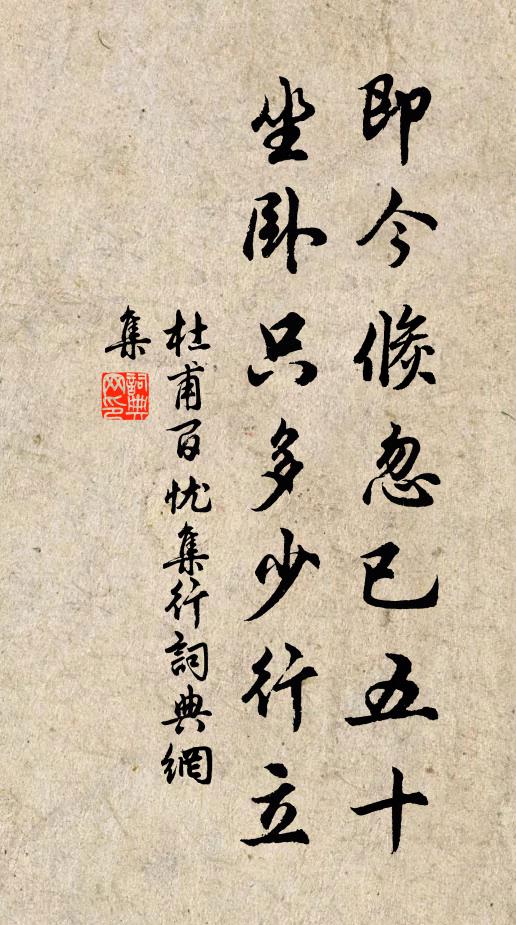 即今倏忽已五十
坐卧只多少行立
杜甫百忧集行詞典網
集
詞典网印